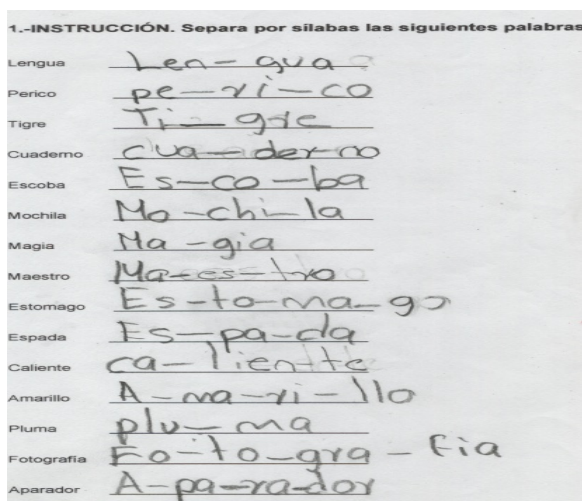 1.-INSTRUCCIÓN. Separa por sílabas las siguientes palabras
Lengua Len - gua
Perico pe - ri - co
Tigre Ti - gre
Cuaderno cua - der - no
Escoba Es - co - ba
Mochila Mo - chi - la
Magia Ma - gia
Maestro Ma - es - tro
Estomago Es - to - ma - go
Espada Es - pa - da
Caliente ca - lien - te
Amarillo A - ma - ri - llo
Pluma plu - ma
Fotografía Fo - to - gra - fia
Aparador A - pa - ra - dor